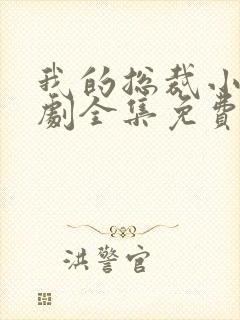 我的总裁小
劇全集免費
洪警官